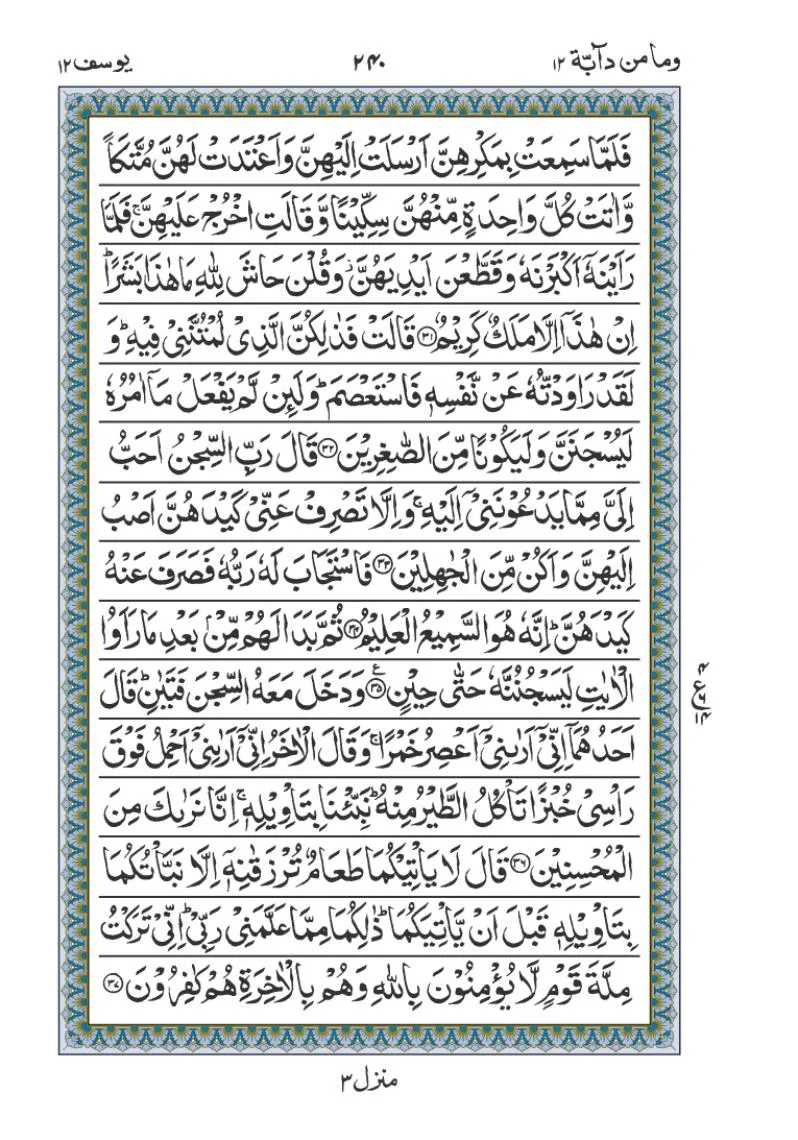 وما من دآبّة ۱۲
۲۴۰
يوسف ۱۲
فَلَمَّا سَمِعَتْ بِمَكْرِهِنَّ اَرْسَلَتْ اِلَيْهِنَّ وَاَعْتَدَتْ لَهُنَّ مُتَّكَاً
وَّاٰتَتْ كُلَّ وَاحِدَةٍ مِّنْهُنَّ سِكِّيْنًا وَّقَالَتِ اخْرُجْ عَلَيْهِنَّ ۚ فَلَمَّا
رَاَيْنَهٗۤ اَكْبَرْنَهٗ وَقَطَّعْنَ اَيْدِيَهُنَّ ؗ وَقُلْنَ حَاشَ لِلّٰهِ مَا هٰذَا بَشَرًا ؕ
اِنْ هٰذَاۤ اِلَّا مَلَكٌ كَرِيْمٌ ۝۳۱ قَالَتْ فَذٰلِكُنَّ الَّذِىْ لُمْتُنَّنِىْ فِيْهِ ؕ وَ
لَقَدْ رَاوَدْتُّهٗ عَنْ نَّفْسِهٖ فَاسْتَعْصَمَ ؕ وَلَئِنْ لَّمْ يَفْعَلْ مَاۤ اٰمُرُهٗ
لَيُسْجَنَنَّ وَلَيَكُوْنًا مِّنَ الصّٰغِرِيْنَ ۝۳۲ قَالَ رَبِّ السِّجْنُ اَحَبُّ
اِلَىَّ مِمَّا يَدْعُوْنَنِىْۤ اِلَيْهِ ۚ وَاِلَّا تَصْرِفْ عَنِّىْ كَيْدَهُنَّ اَصْبُ
اِلَيْهِنَّ وَاَكُنْ مِّنَ الْجٰهِلِيْنَ ۝۳۳ فَاسْتَجَابَ لَهٗ رَبُّهٗ فَصَرَفَ عَنْهُ
كَيْدَهُنَّ ؕ اِنَّهٗ هُوَ السَّمِيْعُ الْعَلِيْمُ ۝۳۴ ثُمَّ بَدَا لَهُمْ مِّنْۢ بَعْدِ مَا رَاَوُا
الْاٰيٰتِ لَيَسْجُنُنَّهٗ حَتّٰى حِيْنٍ ۝۳۵ ع وَدَخَلَ مَعَهُ السِّجْنَ فَتَيٰنِ ؕ قَالَ
۴
ع
۶
۱۴
اَحَدُهُمَاۤ اِنِّىْۤ اَرٰىنِىْۤ اَعْصِرُ خَمْرًا ۚ وَقَالَ الْاٰخَرُ اِنِّىْۤ اَرٰىنِىْۤ اَحْمِلُ فَوْقَ
رَاْسِىْ خُبْزًا تَاْكُلُ الطَّيْرُ مِنْهُ ؕ نَبِّئْنَا بِتَاْوِيْلِهٖ ۚ اِنَّا نَرٰىكَ مِنَ
الْمُحْسِنِيْنَ ۝۳۶ قَالَ لَا يَاْتِيْكُمَا طَعَامٌ تُرْزَقٰنِهٖۤ اِلَّا نَبَّاْتُكُمَا
بِتَاْوِيْلِهٖ قَبْلَ اَنْ يَّاْتِيَكُمَا ؕ ذٰلِكُمَا مِمَّا عَلَّمَنِىْ رَبِّىْ ؕ اِنِّىْ تَرَكْتُ
مِلَّةَ قَوْمٍ لَّا يُؤْمِنُوْنَ بِاللّٰهِ وَهُمْ بِالْاٰخِرَةِ هُمْ كٰفِرُوْنَ ۝۳۷
منزل ۳